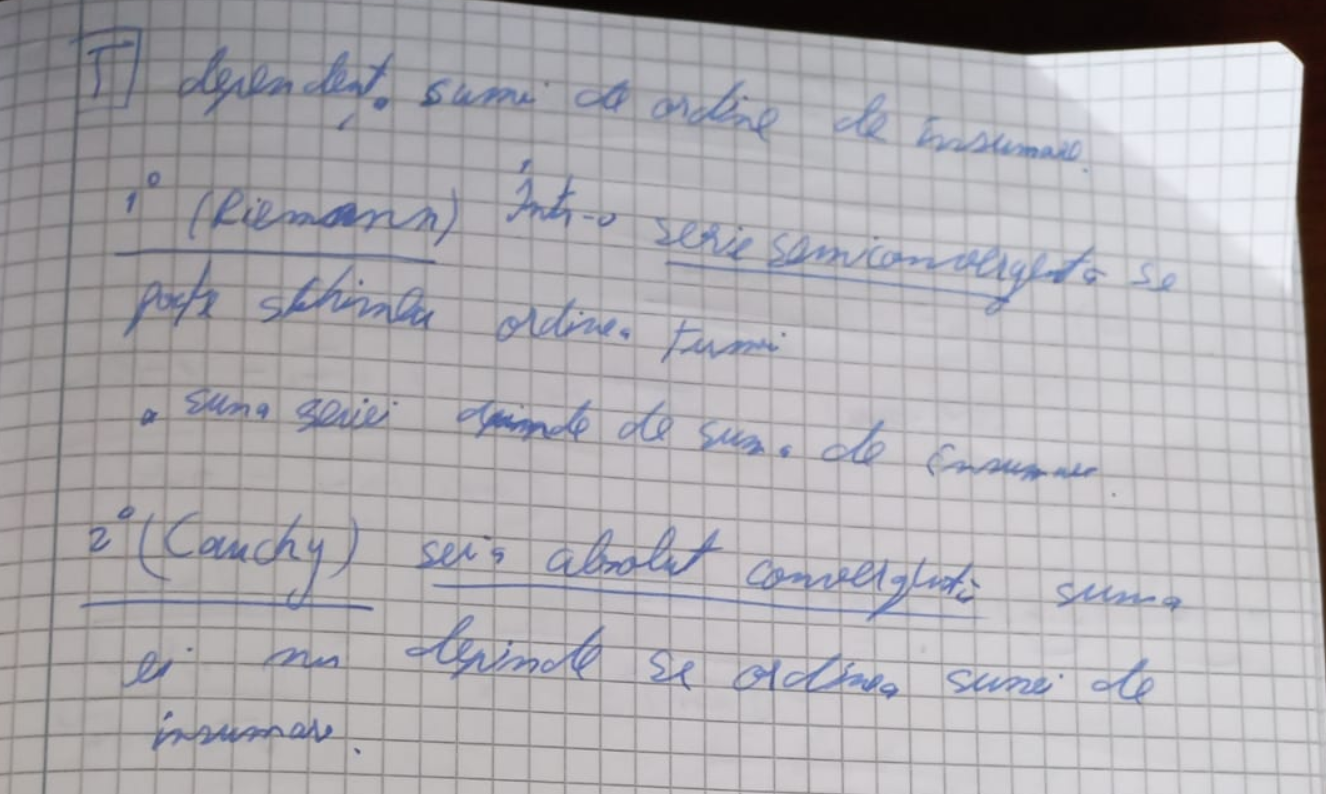 T dependența sumei de ordine de însumare.
1° (Riemann) Într-o serie semiconvergentă se
poate schimba ordinea
suma seriei depinde de suma de însumare.
2° (Cauchy) seria absolut convergentă suma
ei nu depinde se ordinea sumei de
însumare.